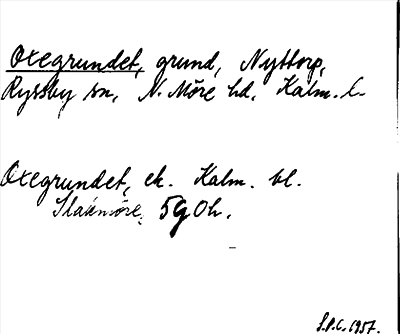 Oxegrundet, grund, Nyttorp,
Ryssby sn, N. Möre hd, Kalm. l.
Oxegrundet, ek. Kalm. bl.
5g Oh.
S.P.C. 1957.